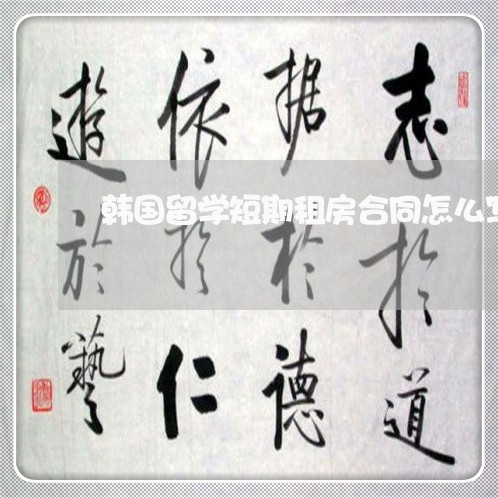 志於道
据於德
依於仁
遊於藝
韩国留学短期租房合同怎么